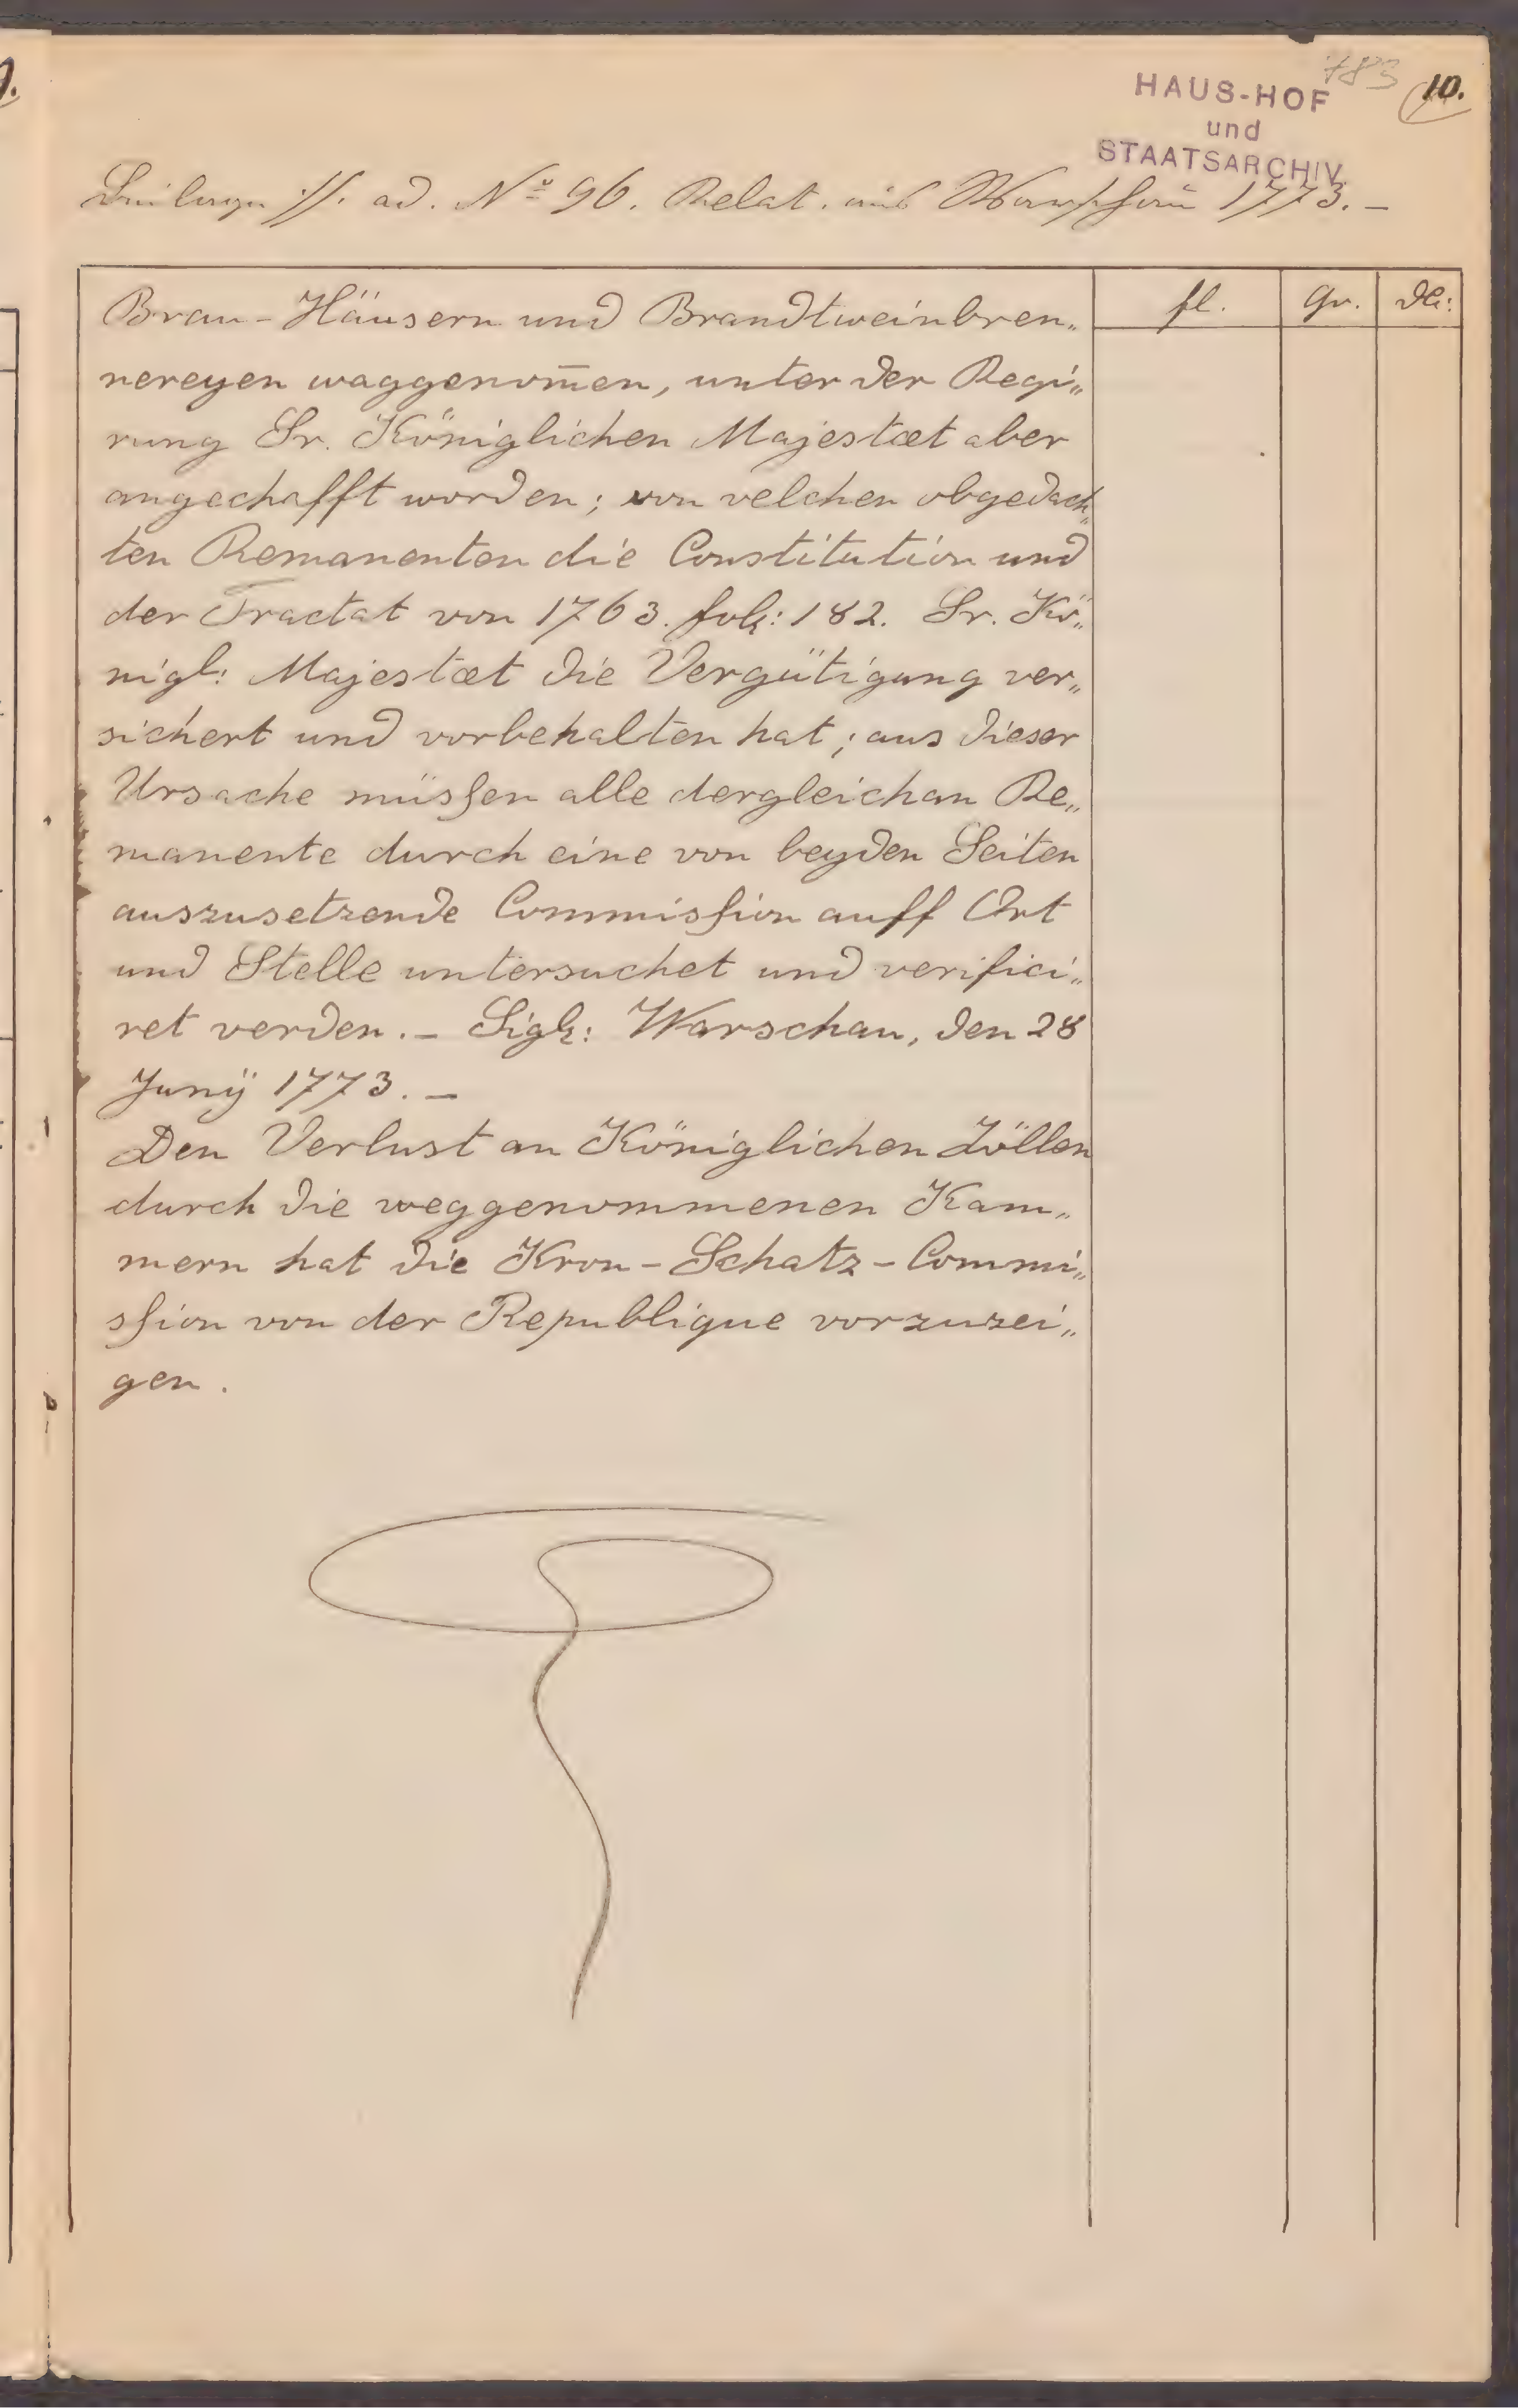 783 10.
HAUS-HOF
und
STAATSARCHIV
Beilage //. ad. Nº 96. Relat. aus Warschau 1773. –
fl. gr. dl:
Brau-Häusern und Brandtweinbren„
nereyen waggenom̄en, unter der Regi„
rung Sr. Königlichen Majestæt aber
angechafft worden; von velchen obgedach„
ten Remanenten die Constitution und
der Tractat von 1763. fol: 182. Sr. Kö„
nigl: Majestæt die Vergütigung ver„
sichert und vorbehalten hat; aus dieser
Ursache müsſen alle dergleichan Re„
manente durch eine von beyden Seiten
auszusetzende Commisſion auff Ort
und Stelle untersuchet und verifici„
ret verden. – Sigl: Warschau, den 28
Junÿ 1773. –
Den Verlust an Königlichen Zöllen
durch die weggenommenen Kam„
mern hat die Kron-Schatz-Commi„
sſion von der Republique vorzuzei„
gen.